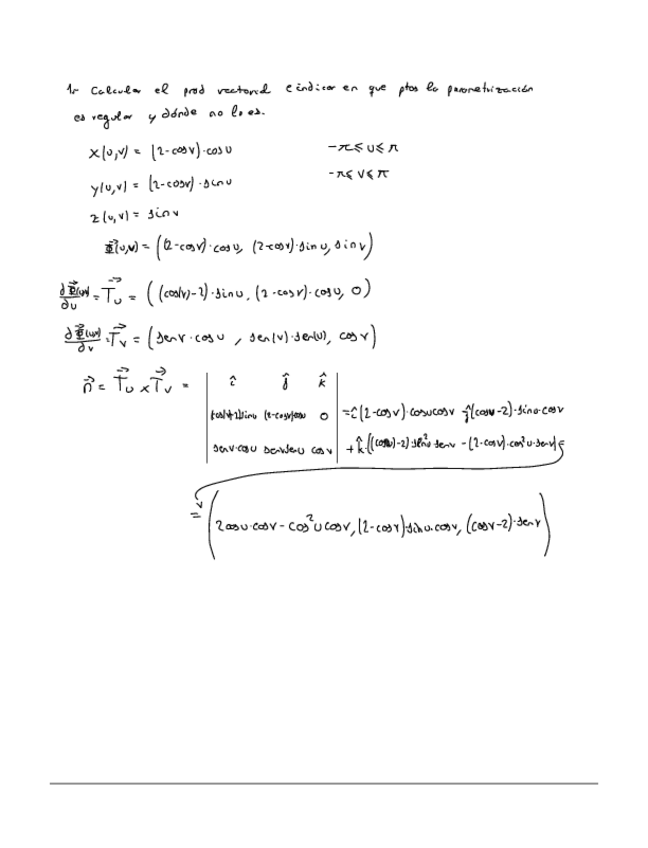 1.- Calcular el prod vectorial e indicar en que ptos la parametrización
es regular y dónde no lo es.
x(u,v) = (2-cosv)·cosu -π≤u≤π
y(u,v) = (2-cosv)·sinu -π≤v≤π
z(u,v) = sinv
Φ(u,v) = ((2-cosv)·cosu, (2-cosv)·sinu, sinv)
∂Φ(u,v)/∂u = T⃗u = ((cos(v)-2)·sinu, (2-cosv)·cosu, 0)
∂Φ(u,v)/∂v = T⃗v = (senv·cosu, sen(v)·sen(u), cosv)
n⃗ = T⃗u × T⃗v = | î ĵ k̂ |
(cos(v)-2)sinu (2-cosv)cosu 0 = î(2-cosv)·cosucosv - ĵ(cosv-2)·sinu·cosv
senv·cosu senvsenu cosv + k̂·((cos(v)-2)·sen²u·senv - (2-cosv)·cos²u·senv) =
= (2cosu·cosv - cos²u cosv, (2-cosv)·sinu·cosv, (cosv-2)·senv)